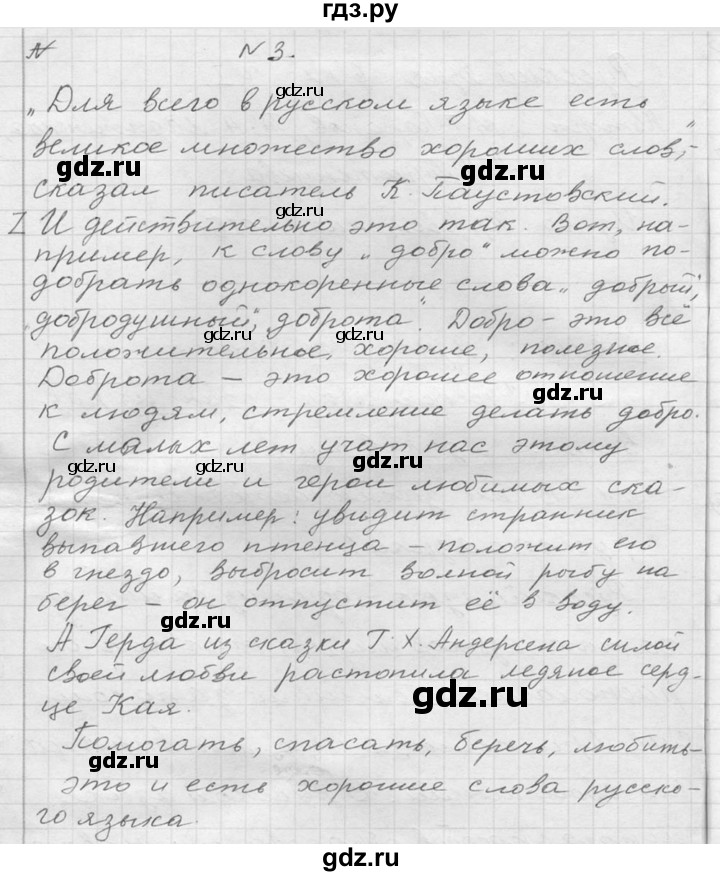 гдз.ру
N N 3.
gdz.ru
„Для всего в русском языке есть
великое множество хороших слов", -
gdz.ru
gdz.ru
сказал писатель К. Паустовский.
Z И действительно это так. Вот, на-
gdz.ru
пример, к слову „добро" можно по-
добрать однокоренные слова „добрый",
„добродушный", „доброта". Добро - это всё
gdz.ru
gdz.ru
положительное, хорошее, полезное.
Доброта - это хорошее отношение
gdz.ru
к людям, стремление делать добро.
С малых лет учат нас этому
gdz.ru
gdz.ru
родители и герои любимых ска-
зок. Например: увидит странник
gdz.ru
выпавшего птенца - положит его
в гнездо, выбросит волной рыбу на
gdz.ru
берег - он отпустит её в воду.
gdz.ru
А Герда из сказки Г. Х. Андерсена силой
своей любви растопила ледяное серд-
gdz.ru
це Кая.
Помогать, спасать, беречь, любить-
gdz.ru
gdz.ru
это и есть хорошие слова русско-
го языка.
gdz.ru
gdz.ru